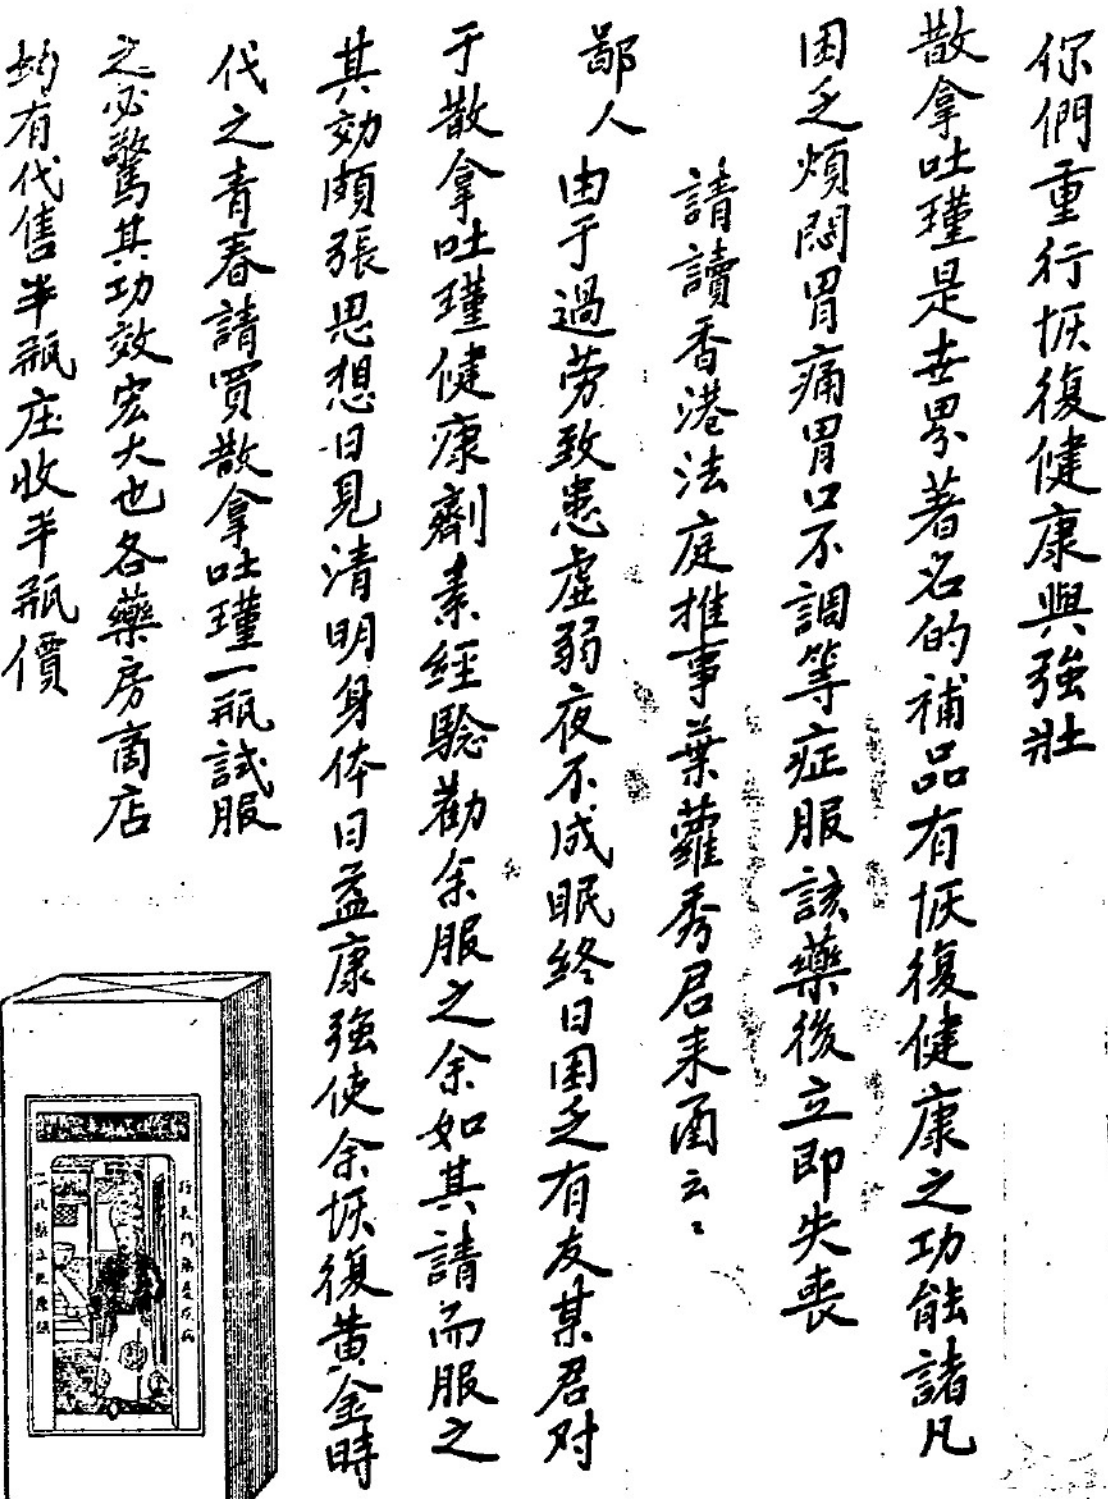 你們重行恢復健康與強壯
散拿吐瑾是世界著名的補品有恢復健康之功能諸凡
困乏煩悶胃痛胃口不調等症服該藥後立即失丧
請讀香港法庭推事葉蘿秀君来函云〻
鄙人 由于過劳致患虚弱夜不成眠終日困乏有友某君对
于散拿吐瑾健康劑素經驗勸余服之余如其請而服之
其効頗張思想日見清明身体日益康強使余恢復黄金時
代之青春請買散拿吐瑾一瓶試服
之必驚其功效宏大也各藥房商店
均有代售半瓶庄收半瓶價